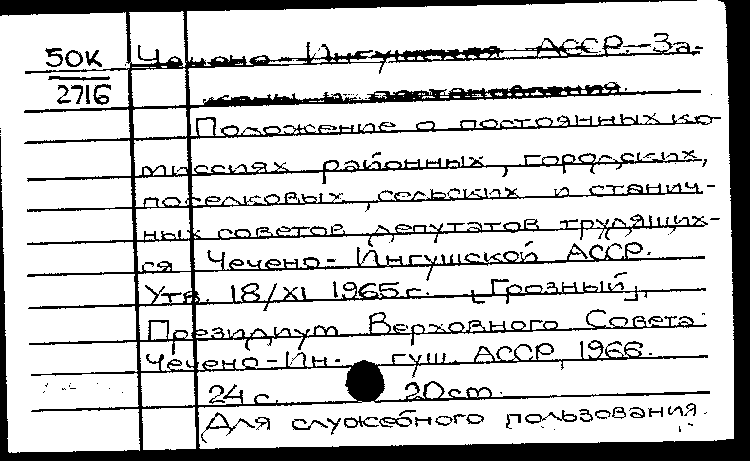 50К
2716
Чечено-Ингушская АССР. За-
коны и постановления.
Положение о постоянных ко-
миссиях районных, городских,
поселковых, сельских и станич-
ных советов депутатов трудящих-
ся Чечено-Ингушской АССР.
Утв. 18/XI 1965г. [Грозный],
Президиум Верховного Совета
Чечено-Ин- гуш. АССР, 1966.
24 с. 20 cm.
Для служебного пользования.